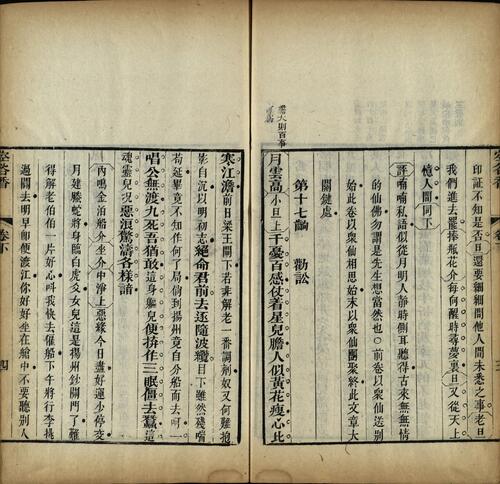 印証不知是否旦還要細細問他人間未悉之事老旦
我們進去罷捧瓶花介每向醒時尋夢裏旦又從天上
憶人間同下
評喃喃私語似從月明人靜時側耳聽得古來無無情
的仙佛勿謂是先生想當然也○前卷以衆仙送別
始此卷以衆仙相思始末以衆仙團聚終此文章大
關鍵處
第十七齣 勸訟
月雲高小旦上千憂百感仗着星兒膽人似黃花瘦心比
寒江澹前日梁王閘下若非解老一番調劑奴又何難抱
影自沉以明初志絕命君前去還隨波纜目下雖然殘喘
苟延畢竟不知作何了局倘到揚州竟自分船而去啊
唱公無渡九死吾猶敢這身軀兒便拚作三眠僵去蠶這
魂靈兒況惡浪驚濤各樣諳
內鳴金泊船介坐介中淨上惡緣今日盡好運少停交
月建騰蛇將身臨白虎爻女兒這是揚州鈔關門了難
得解老伯伯一片好心叫我快去催船下午將行李挑
過關去明早朝便渡江你好好坐在艙中不要聽別人
卷下 四